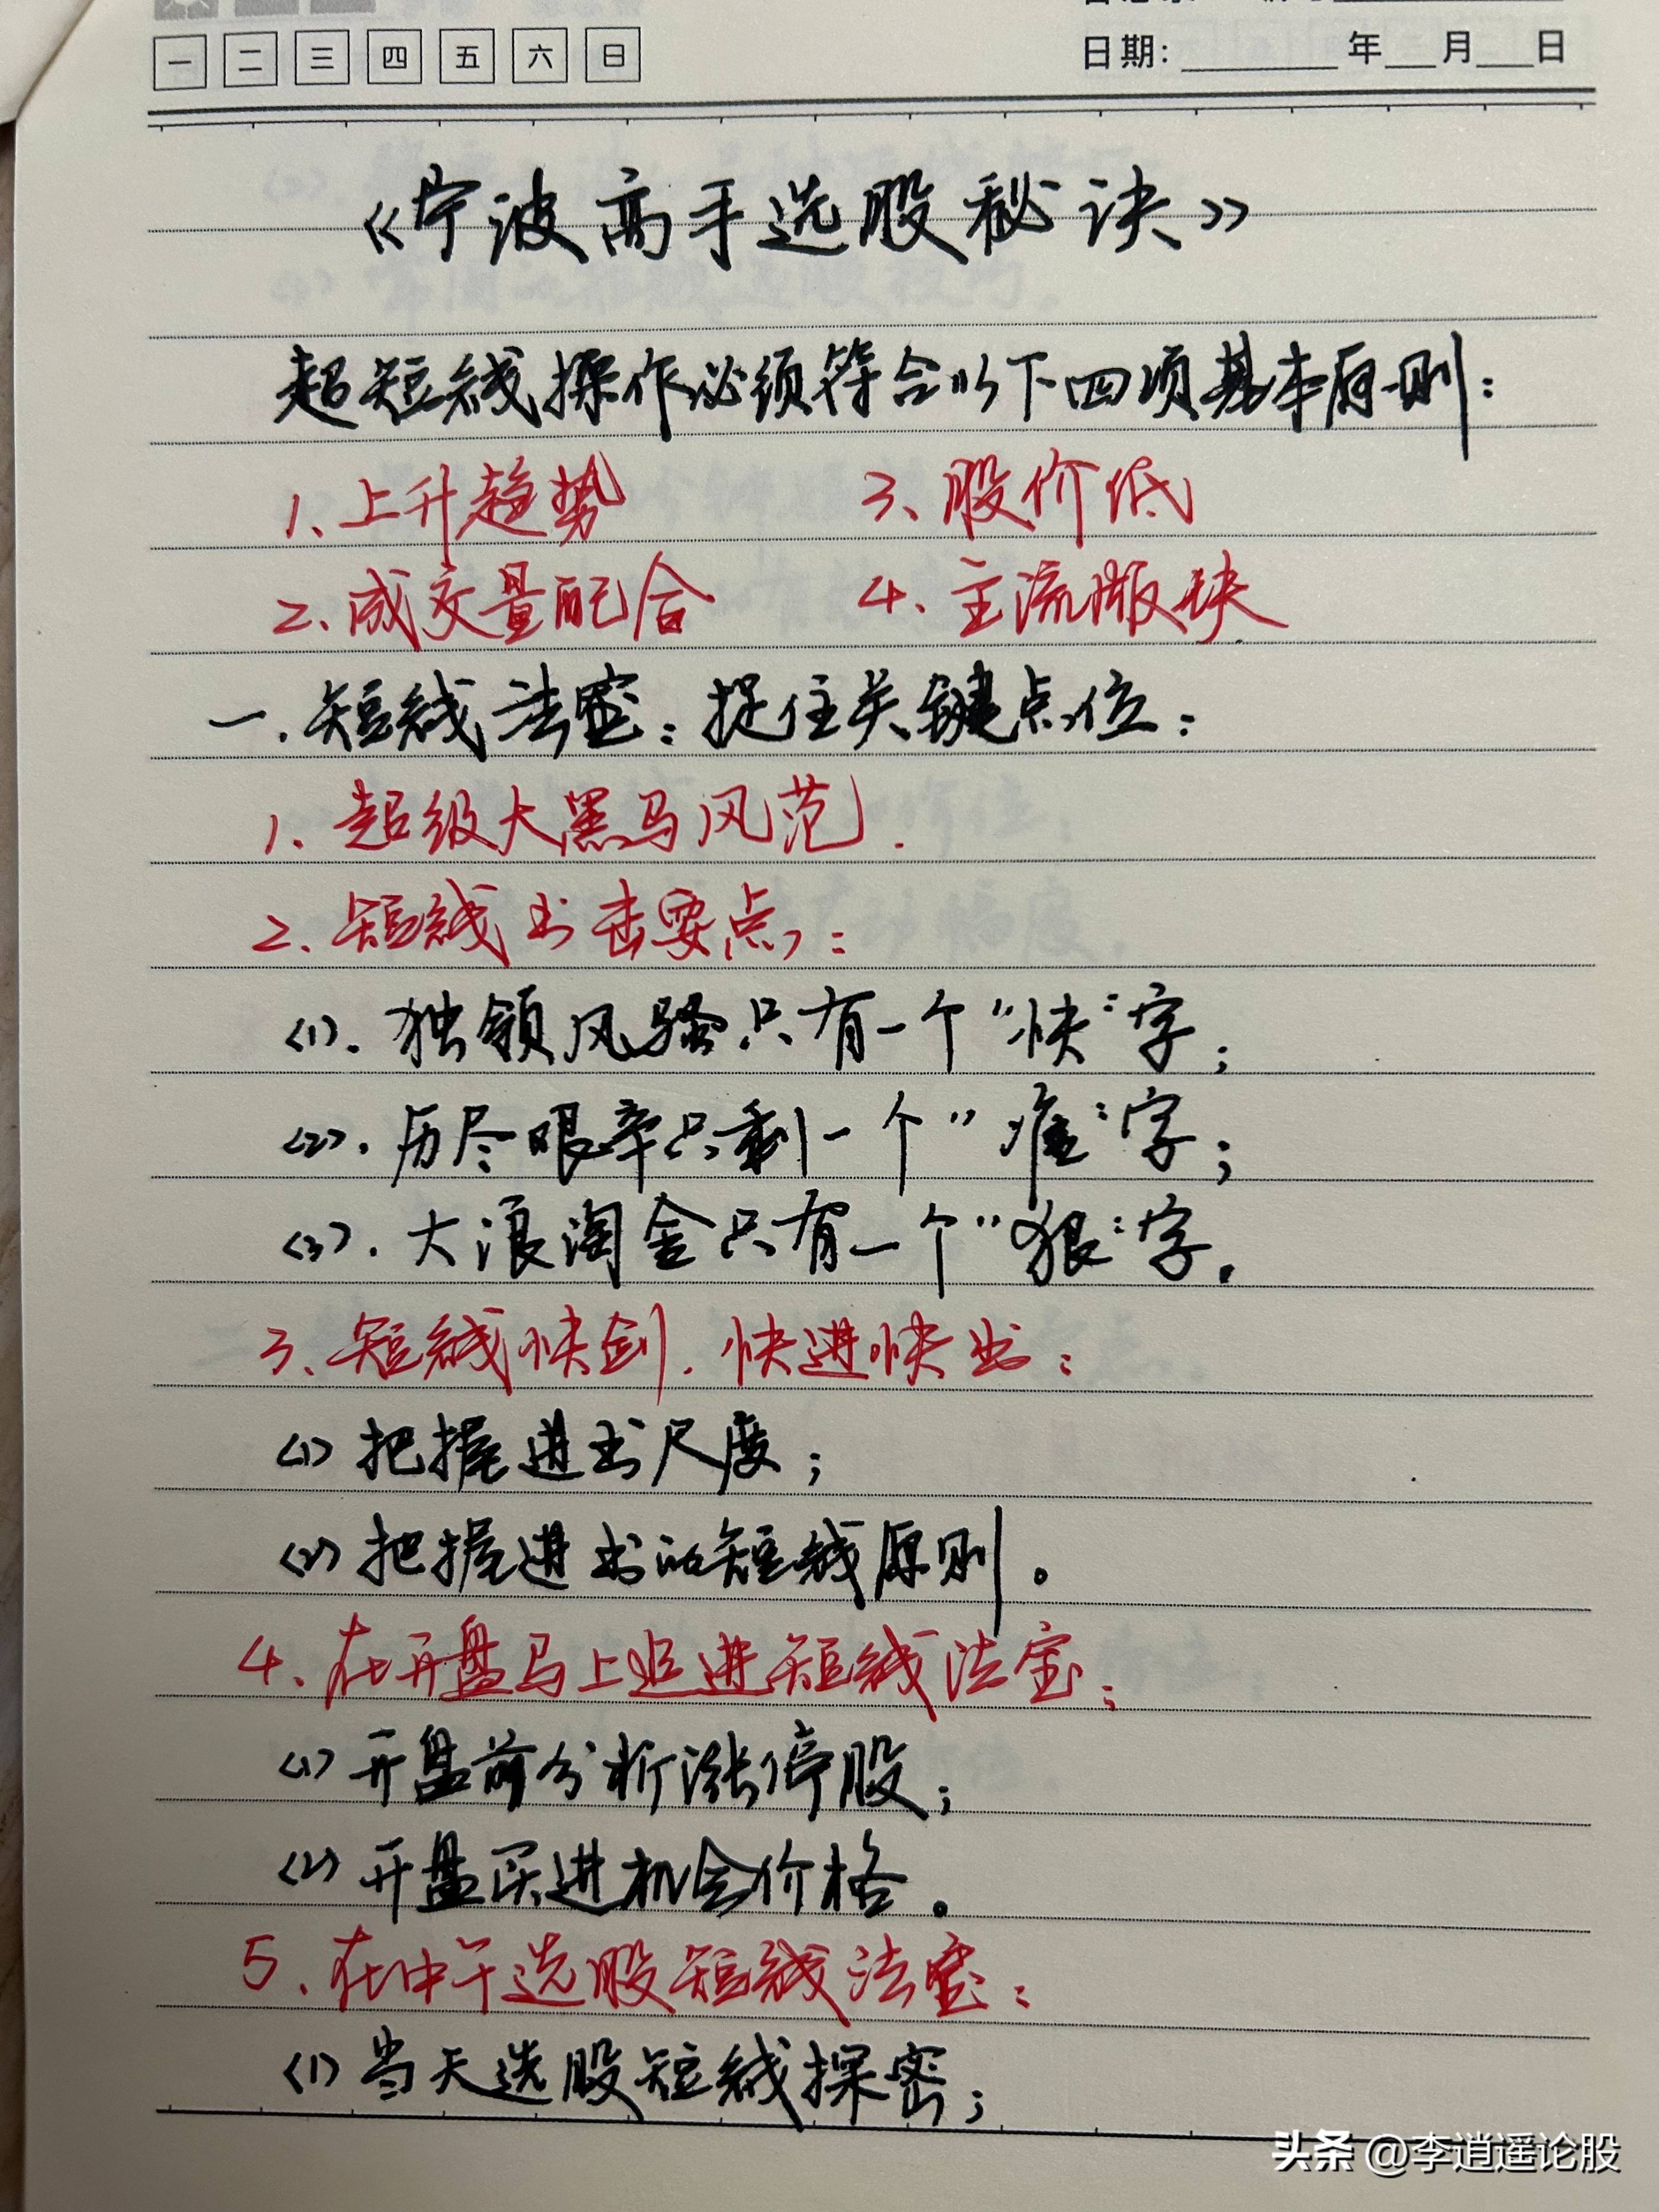 一 二 三 四 五 六 日
日期: 年 月 日
《宁波高手选股秘诀》
超短线操作必须符合以下四项基本原则:
1、上升趋势 3、股价低
2、成交量配合 4、主流版块
一.短线法宝:捉住关键点位:
1、超级大黑马风范.
2、短线出击要点:
(1).独领风骚只有一个“快”字;
(2).历尽艰辛只剩一个“难”字;
(3).大浪淘金只有一个“狠”字.
3、短线快剑.快进快出:
(1)把握进出尺度;
(2)把握进出的短线原则。
4、在开盘马上追进短线法宝;
(1)开盘前分析涨停股;
(2)开盘买进机会价格。
5、在中午选股短线法宝:
(1)当天选股短线探密;
头条 @李逍遥论股